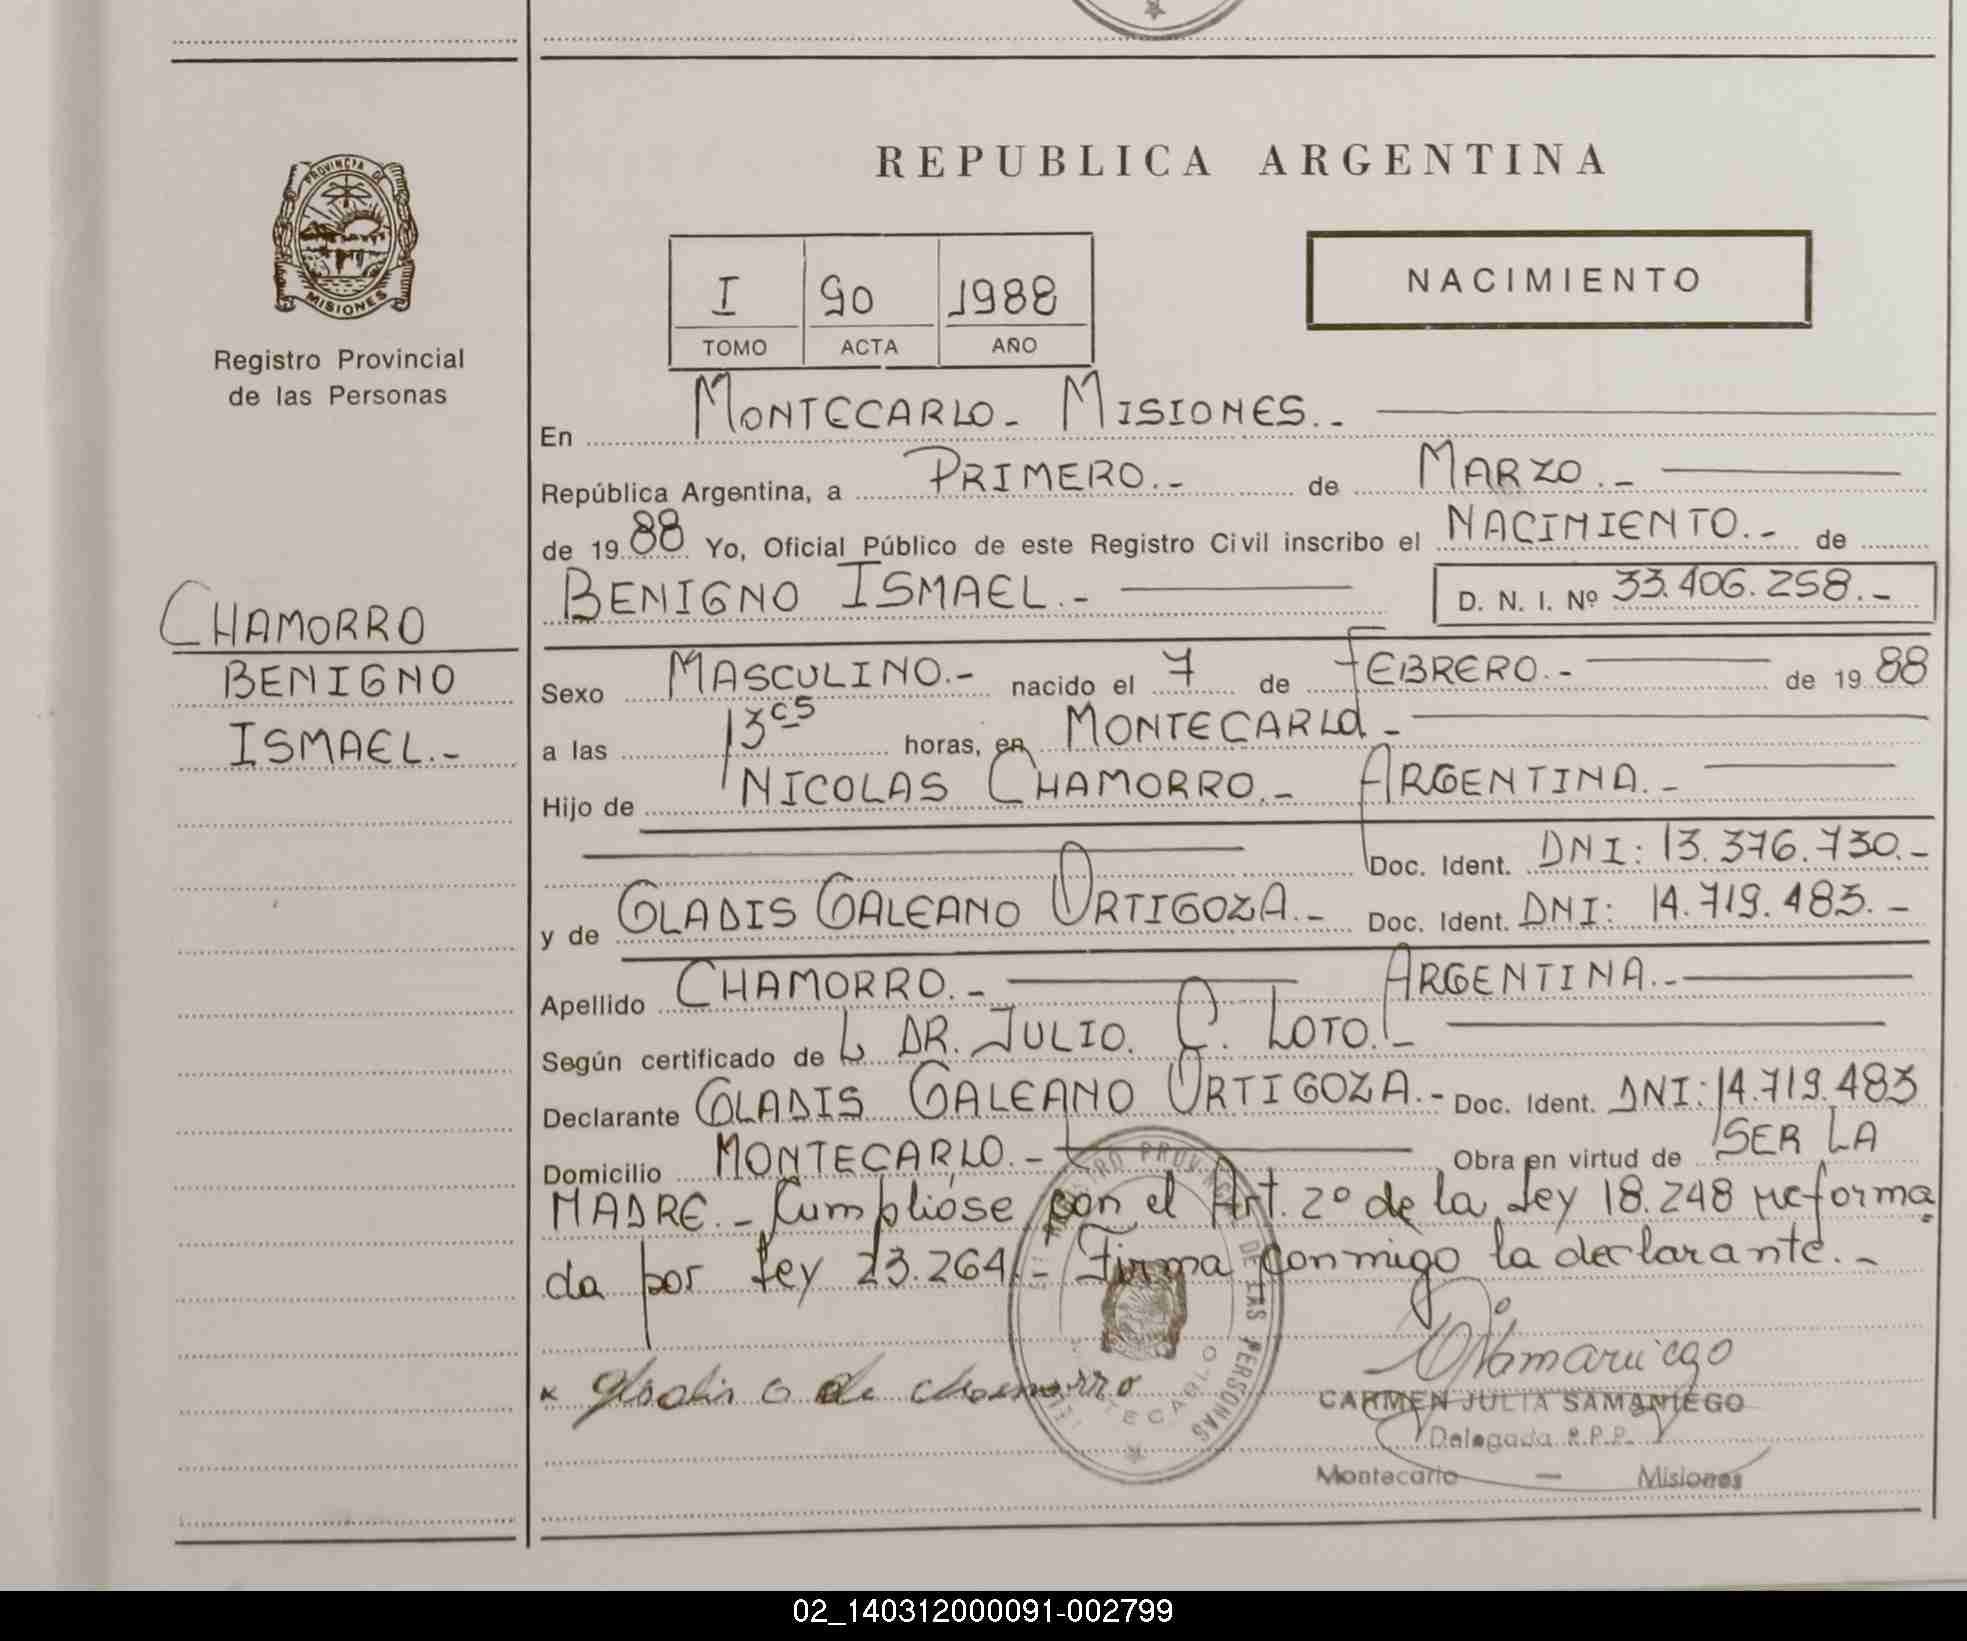 REPUBLICA ARGENTINA
PROVINCIA DE
MISIONES
Registro Provincial
de las Personas
NACIMIENTO
I 90 1988
TOMO ACTA AÑO
En MONTECARLO.- MISIONES.-
República Argentina, a PRIMERO.- de MARZO.-
de 19 88 Yo, Oficial Público de este Registro Civil inscribo el NACIMIENTO.- de
BENIGNO ISMAEL.- D. N. I. Nº 33.406.258.-
CHAMORRO
BENIGNO
ISMAEL.-
Sexo MASCULINO.- nacido el 7 de FEBRERO.- de 19 88
a las 13 cs horas, en MONTECARLO.-
Hijo de NICOLAS CHAMORRO.- ARGENTINA.-
Doc. Ident. DNI: 13.376.730.-
y de GLADIS GALEANO ORTIGOZA.- Doc. Ident. DNI: 14.719.483.-
Apellido CHAMORRO.- ARGENTINA.-
Según certificado de L DR. JULIO. C. LOTO.-
Declarante GLADIS GALEANO ORTIGOZA.- Doc. Ident. DNI: 14.719.483
Domicilio MONTECARLO.- Obra en virtud de SER LA
MADRE.- Cumplióse con el Art. 2º de la Ley 18.248 reforma
da por Ley 23.264.- Firma conmigo la declarante.-
x gladis G de chamorro
CARMEN JULIA SAMANIEGO
Delegada R.P.P.
Montecarlo — Misiones
02_140312000091-002799